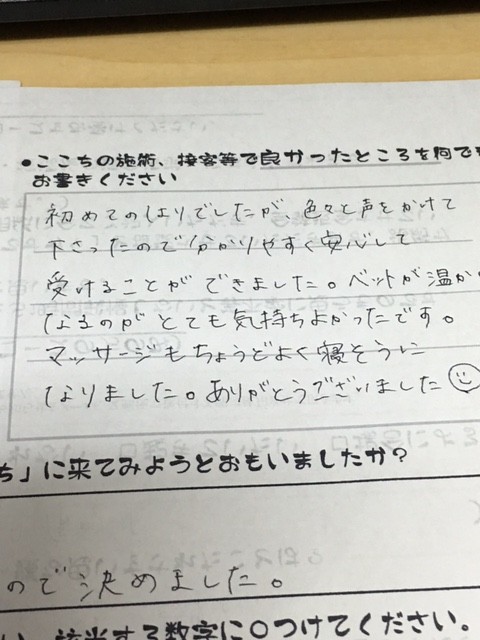 ●ここちの施術、接客等で良かったところを何でも
お書きください
初めてのはりでしたが、色々と声をかけて
下さったので分かりやすく安心して
受けることができました。ベットが温か
なるのがとても気持ちよかったです。
マッサージもちょうどよく寝そうに
なりました。ありがとうございました
ち」に来てみようとおもいましたか?
ので決めました。
い、該当する数字に○つけてください。